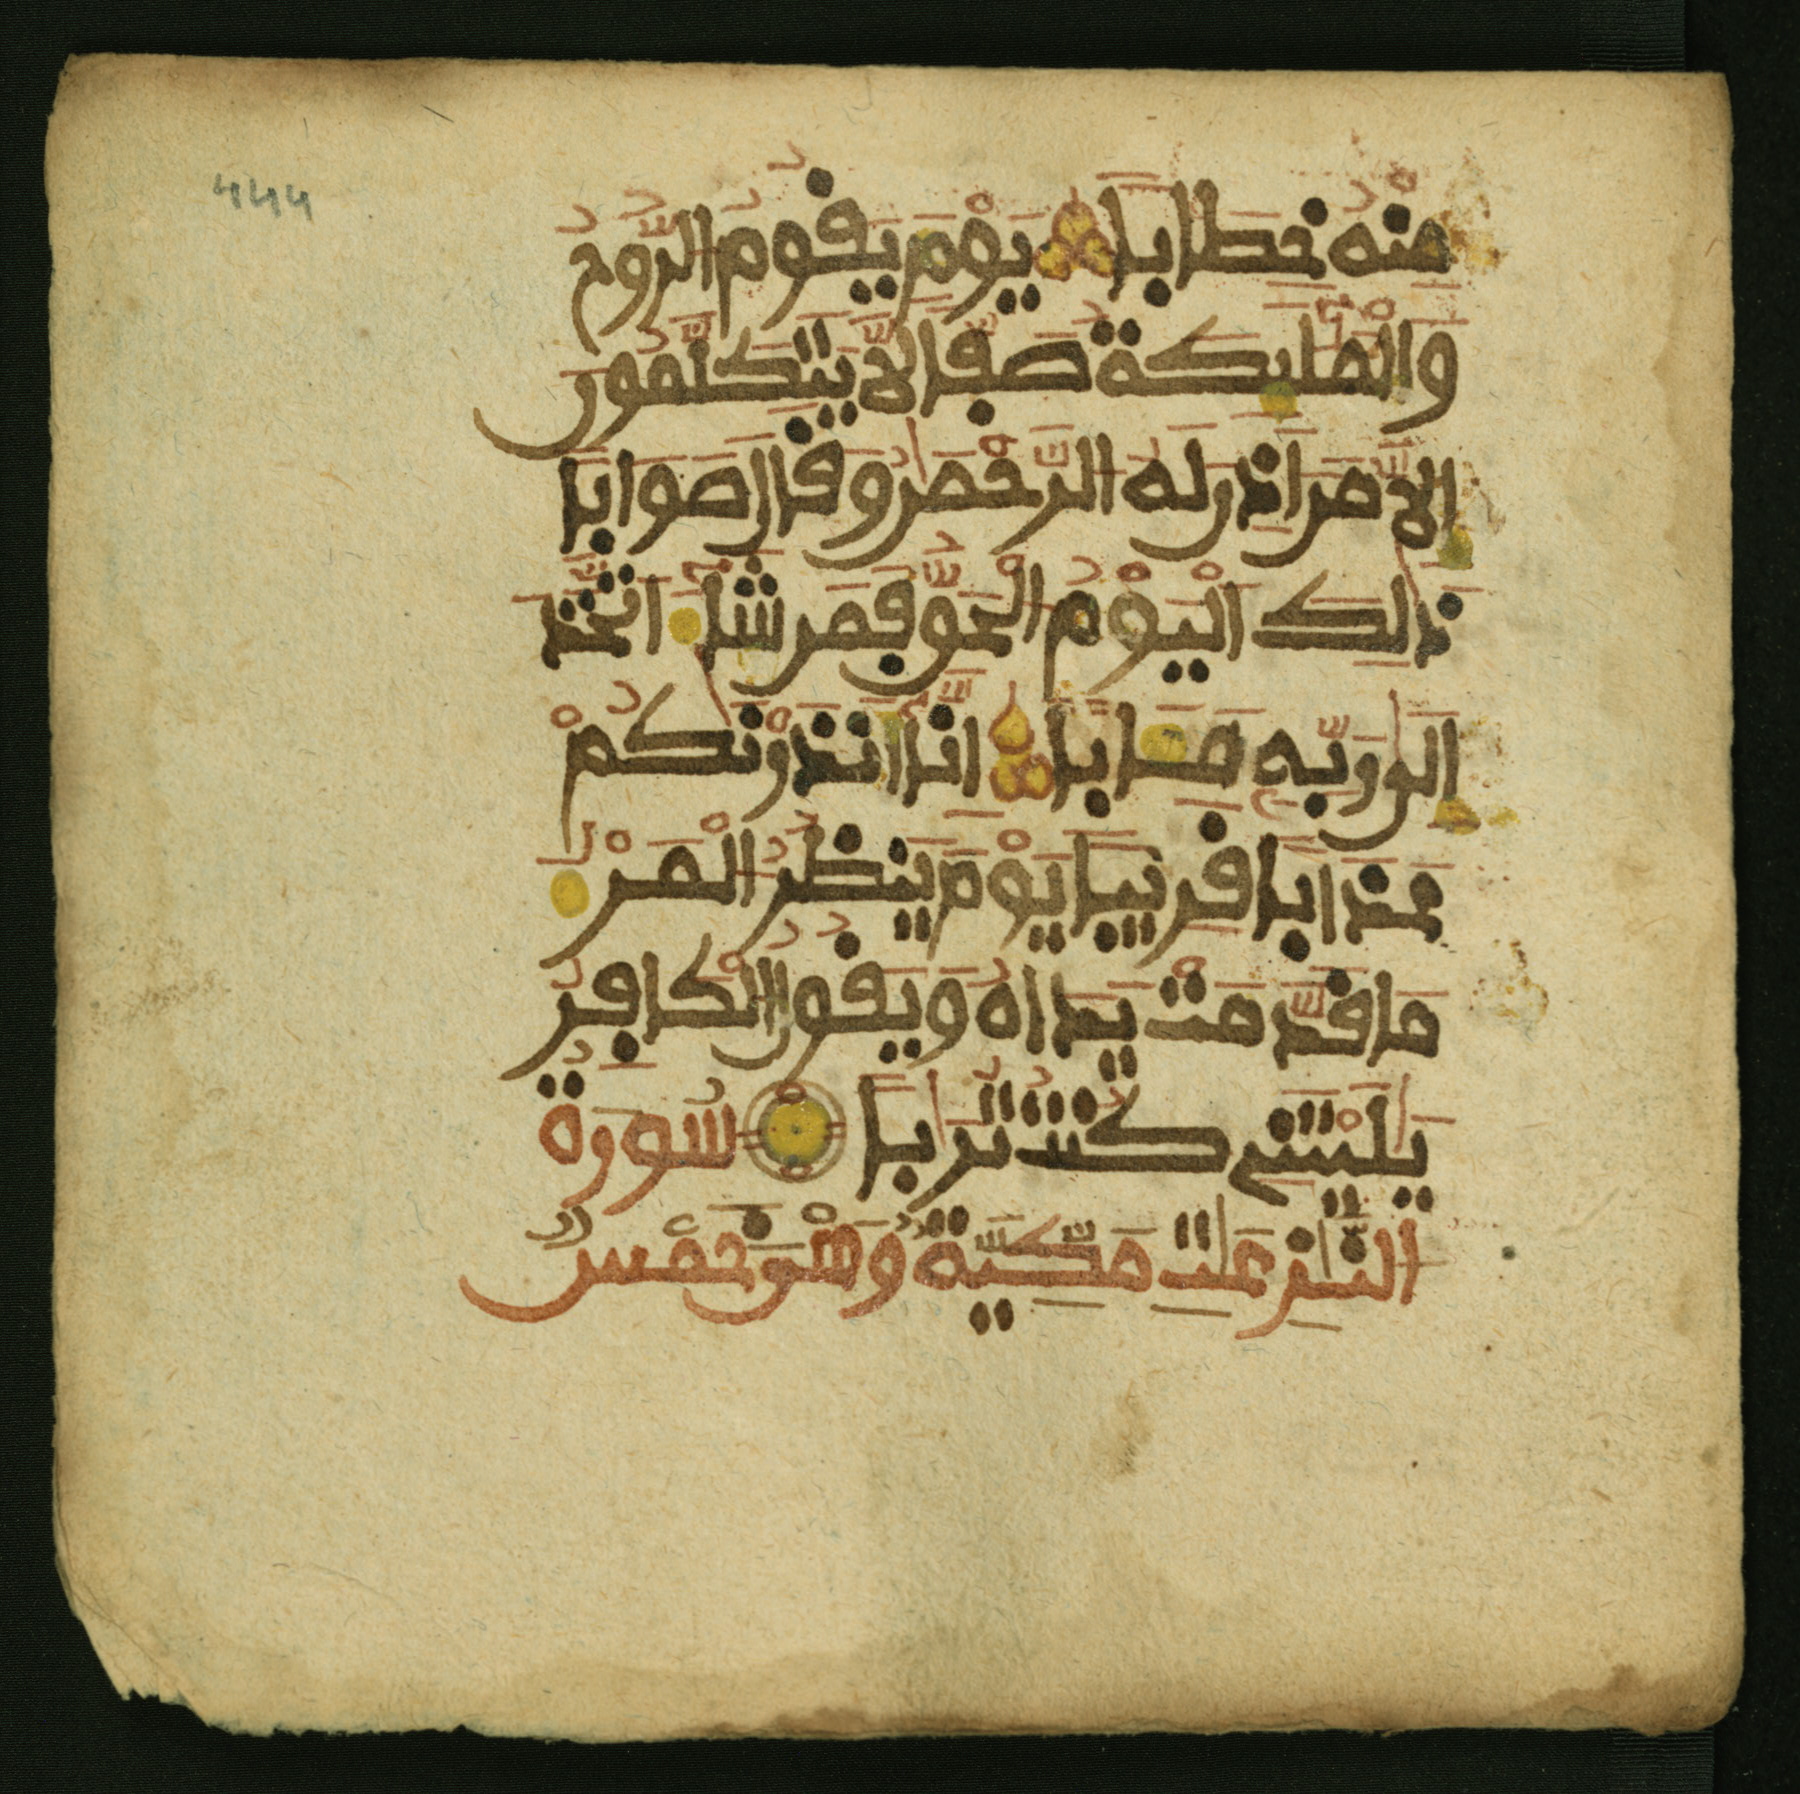 444
مِنْهُ خِطَابًا يَوْمَ يَقُومُ الرُّوحُ
وَالْمَلَٰئِكَةُ صَفًّا لَّا يَتَكَلَّمُونَ
إِلَّا مَنْ أَذِنَ لَهُ الرَّحْمَٰنُ وَقَالَ صَوَابًا
ذَٰلِكَ الْيَوْمُ الْحَقُّ فَمَن شَاءَ اتَّخَذَ
إِلَىٰ رَبِّهِ مَـَٔابًا إِنَّا أَنذَرْنَٰكُمْ
عَذَابًا قَرِيبًا يَوْمَ يَنظُرُ الْمَرْءُ
مَا قَدَّمَتْ يَدَاهُ وَيَقُولُ الْكَافِرُ
يَٰلَيْتَنِي كُنتُ تُرَٰبًا سُورَةُ
النَّٰزِعَٰتِ مَكِّيَّةٌ وَهْيَ خَمْسٌ